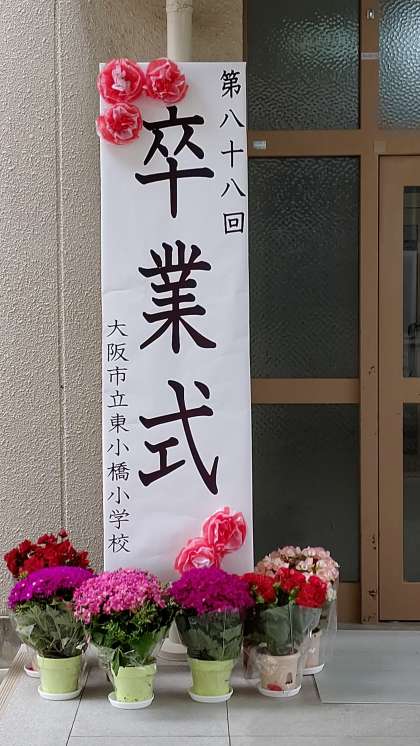 第八十八回
卒業式
大阪市立東小橋小学校